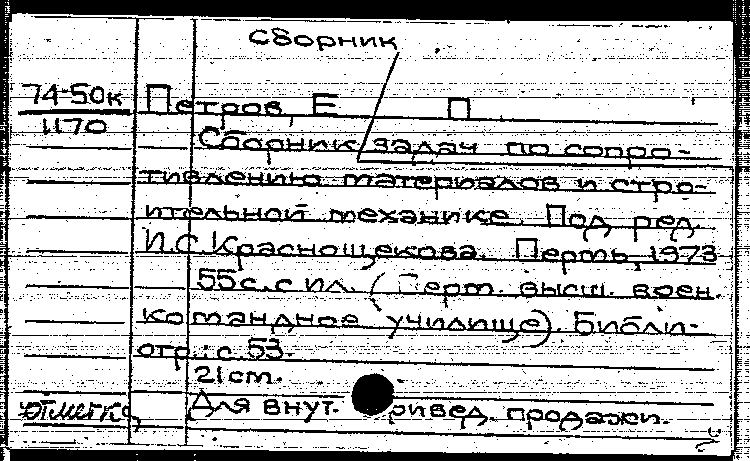 сборник
74-50к Петров, Е П
1170
Сборник задач по сопро-
тивлению материалов и стро-
ительной механике. Под ред.
И.С. Краснощекова. Пермь, 1973
55с. с ил. (Перм. высш. воен.
командное училище). Библи-
отр.: с. 53.
21 cm.
отметка Для внут. продажи.